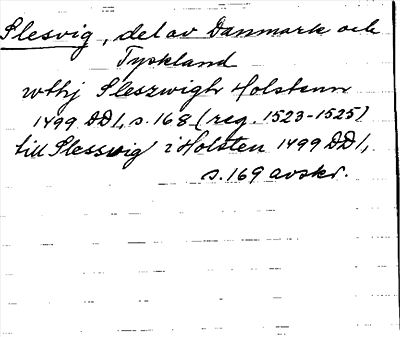 Slesvig, del av Danmark och
Tyskland
wthj Sleszwigh Holstenn
1499 DD1, s. 168 (reg. 1523-1525)
till Slesswig i Holsten 1499 DD1,
s. 169 avskr.